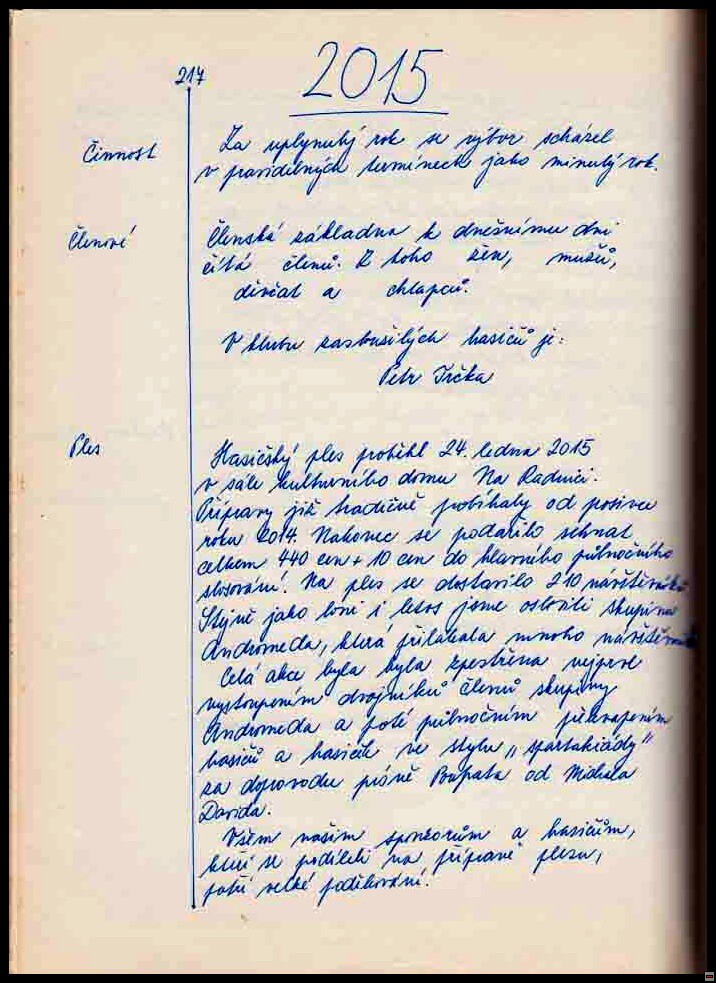 217
2015
Činnost
Za uplynulý rok se výbor scházel
v pravidelných termínech jako minulý rok.
Členové
Členská základna k dnešnímu dni
čítá členů. Z toho žen, mužů,
děvčat a chlapců.
V klubu zasloužilých hasičů je:
Petr Trčka
Ples
Hasičský ples proběhl 24. ledna 2015
v sále kulturního domu Na Radnici.
Přípravy již tradičně probíhaly od posince
roku 2014. Nakonec se podařilo sehnat
celkem 440 cen + 10 cen do hlavního půlnočního
slosování. Na ples se dostavilo 210 návštěvníků
Stejně jako loni i letos jsme oslovili skupinu
Andromeda, která přilákala mnoho
Celá akce byla byla zpestřena nejprve
vystoupením dvojníků členů skupiny
Andromeda a poté půlnočním překvapením
hasičů a hasiček ve stylu „spartakiády"
za doprovodu písně Poupata od Michala
Davida.
Všem našim sponzorům a hasičům,
kteří se podíleli na přípravě plesu,
patří velké poděkování.